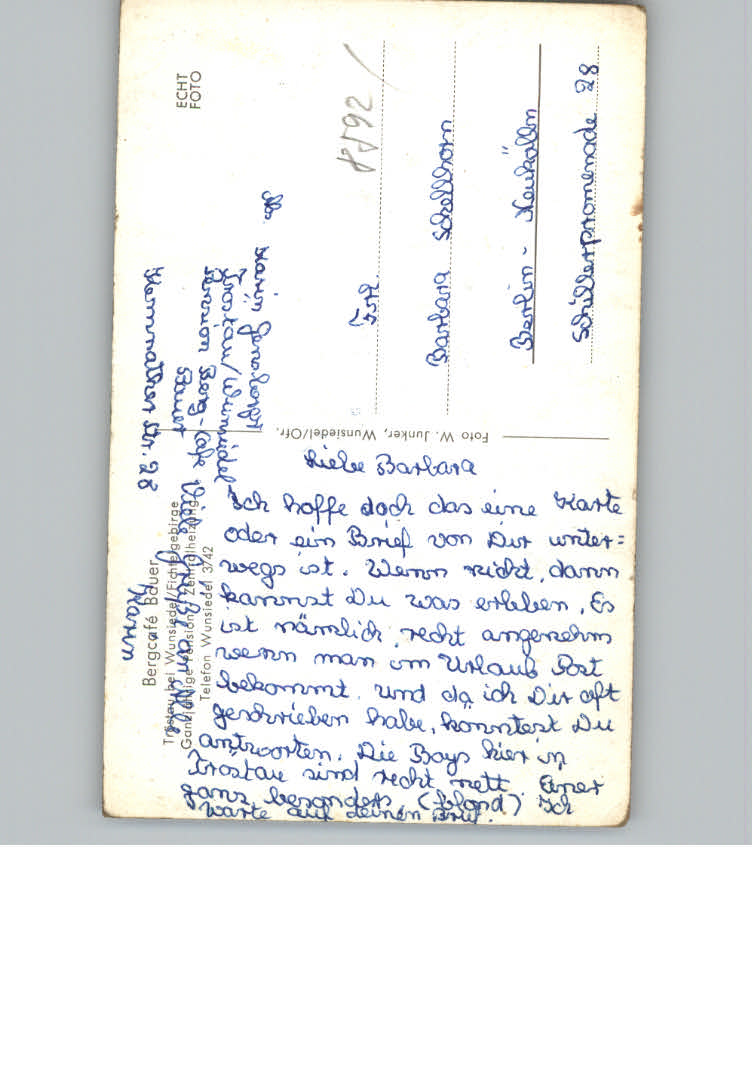 Liebe Barbara
Ich hoffe doch das eine Karte
oder ein Brief von Dir unter=
wegs ist. Wenn nicht, dann
kannst Du was erleben. Es
ist nämlich recht angenehm
wenn man im Urlaub Post
bekommt. und da ich Dir oft
geschrieben habe, könntest Du
antworten. Die Boys hier in
Tröstau sind recht nett. Einer
ganz besonders (blond) Ich
warte auf deinen Brief.
Viele Grüße an alle
Karin
Bergcafé Bauer
Tröstau bei Wunsiedel/Fichtelgebirge
Ganzjährige Pension, Zentralheizung
Telefon Wunsiedel 3742
Foto W. Junker, Wunsiedel/Ofr.
ECHT
FOTO
Abs. Karin
Tröstau/Wunsiedel
Pension Berg-Cafe
Bauer
Kemnather Str. 28
Frl.
Barbara Schellhorn
Berlin - Neukölln
Schillerpromenade 28